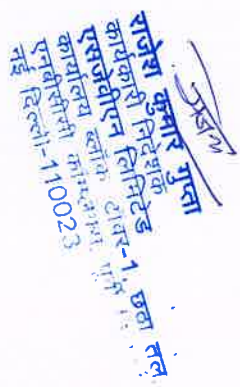 राजेश कुमार गुप्ता
कार्यकारी निदेशक
एसजेवीएन लिमिटेड
कार्यालय ब्लॉक टावर-1, छठा तल
एनबीसीसी कॉम्प्लेक्स,
नई दिल्ली-110023